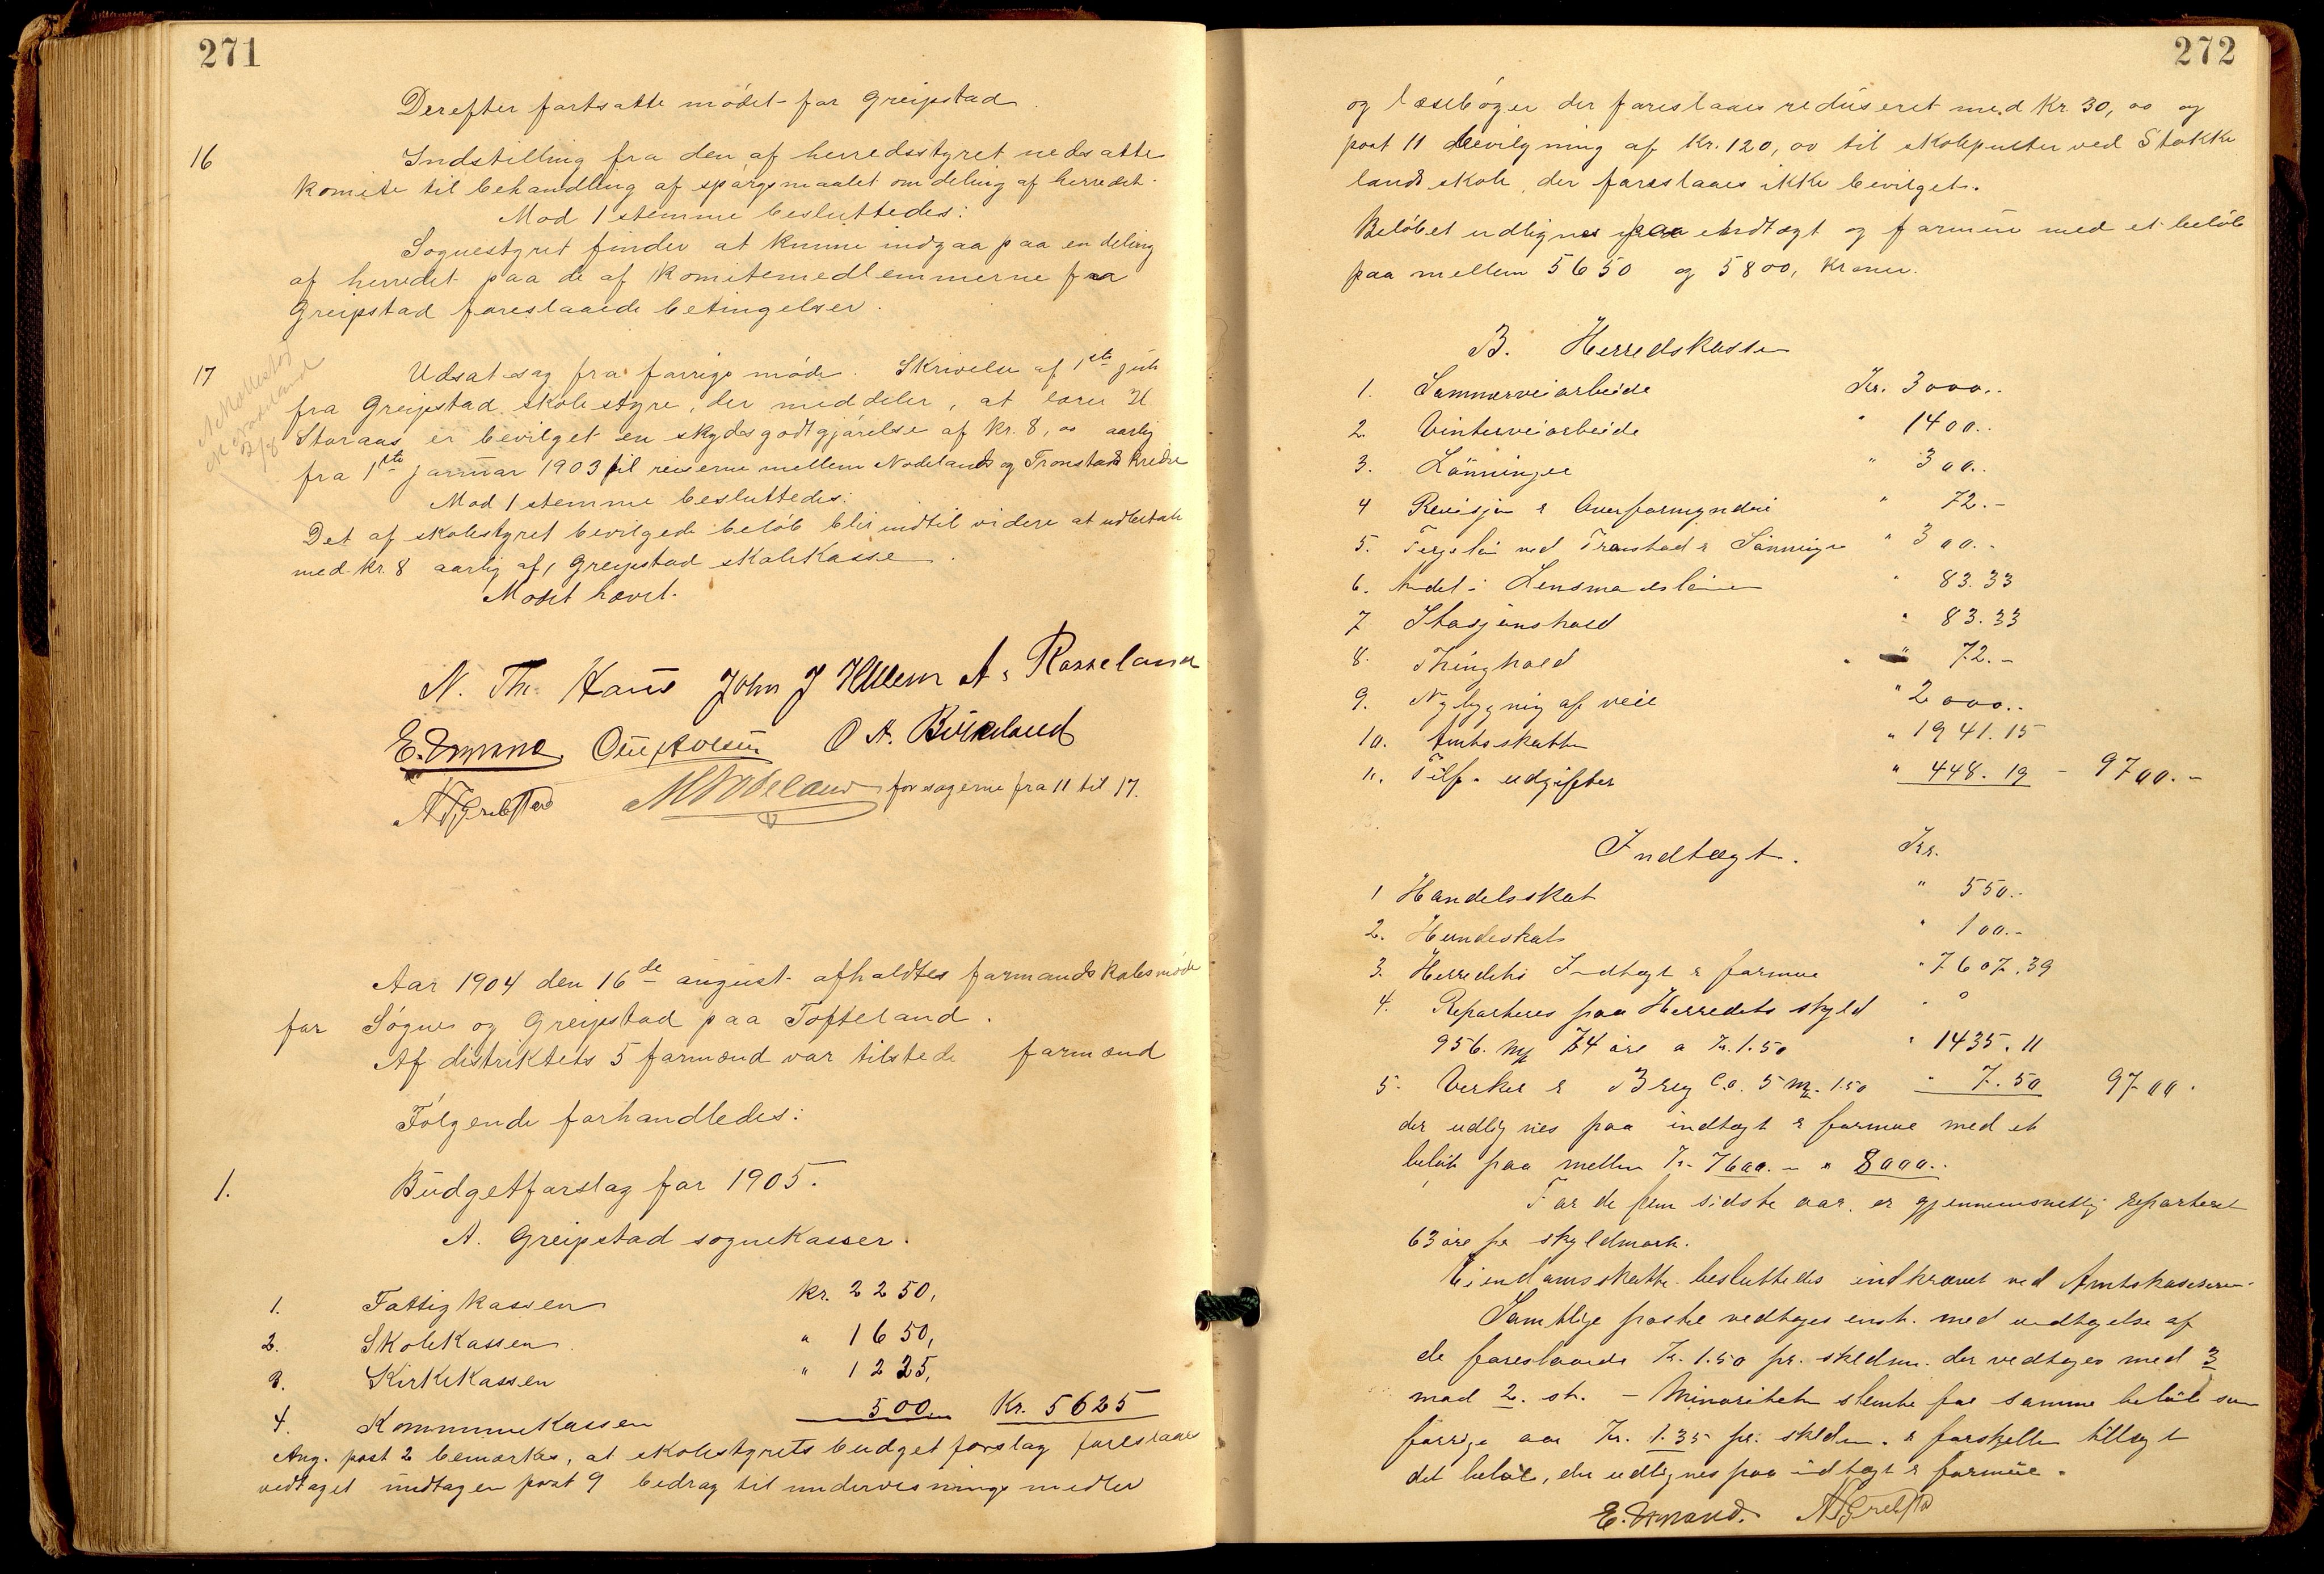 271
Derefter fortsatte mödet for Greipstad.
16 Indstilling fra den af herredsstyret nedsatte
komite til behandling af spörgsmaalet om deling af herredet.
Mod 1 stemme besluttedes:
Sognestyret finder at kunne indgaa paa en deling
af herredet paa de af komitemedlemmerne fra
Greipstad foreslaaede betingelser.
17 Udsat sag fra forrige möde. Skrivelse af 1ste juli
fra Greipstad skolestyre, der meddeler, at lærer H.
Storaas er bevilget en skydsgodtgjörelse af kr. 8,00 aarlig
fra 1ste januar 1903 til reiserne mellem Nodelands og Tronstads kredse
Mod 1 stemme besluttedes:
Det af skolestyret bevilgede belöb blir indtil videre at udbetale
med kr. 8 aarlig af Greipstad skolekasse.
Mödet hævet.
N. Th. Haus John J Hullem A. Rosseland
E. Omland O A. Birkeland
for sagerne fra 11 til 17.
Aar 1904 den 16de august afholdtes formandskabsmöde
for Sögne og Greipstad paa Tofteland.
Af distriktets 5 formænd var tilstede formænd
Fölgende forhandledes:
1. Budgetforslag for 1905.
A. Greipstad sognekasser.
1. Fattigkassen kr. 2250,
2. Skolekassen " 1650,
3. Kirkekassen " 1225,
4. Kommunekassen 500 Kr. 5625
Ang. post 2 bemærkes, at skolestyrets budgetforslag foreslaaes
vedtaget undtagen post 9 bedrag til undervisningsmidler
272
og læseböger der foreslaaes reduseret med Kr. 30,00 og
post 11 bevilgning af Kr. 120,00 til skolepulter ved Stokke
lands skole, der foreslaaes ikke bevilget.
Belöbet udlignes paa indtægt og formue med et belöb
paa mellem 5650 og 5800, Kroner.
B. Herredskassen
1. Sommerveiarbeide Kr. 3000..
2. Vinterveiarbeide " 1400..
3. Lönninger " 300..
4 Revisjon & Overformynderi " 72.-
5. Fergelön ved Tronstad & Lönninger " 300.-
6. Andel i Lensmandslönnen " 83.33
7. Stasjonshold " 83.33
8. Thinghold " 72.-
9. Nybygning af veie " 2000..
10. Amtsskatten " 1941.15
11. Tilf. udgifter " 448.19 - 9700.-
Indtægt. Kr.
1 Handelsskat " 550.-
2. Hundeskat " 100.-
3. Herredets Indtægt & formue " 7607.39
4. Reparteres paa Herredets skyld
956. mk 74 öre a Kr. 1.50 " 1435.11
5. Verker & Brug C.a. 5 mk. 1.50 " 7.50 9700.
der udlignes paa indtægt & formue med et
belöb paa mellem Kr. 7600.- & 8000..
For de fem sidste aar. er gjennemsnetlig reparteret
63 öre pr skyldmark.
Eiendomsskatten besluttedes indkrævet ved Amtskassereren.
Samtlige poster vedtoges enst. med undtagelse af
de foreslaaede Kr. 1.50 pr. skldm. der vedtoges med 3
mod 2. st. - Minoriteten stemte for samme belöb som
forrige aar Kr. 1.35 pr. skldm. & forskjellen tillagt
det belöb, der udlignes paa indtægt & formue.
E. Omland.